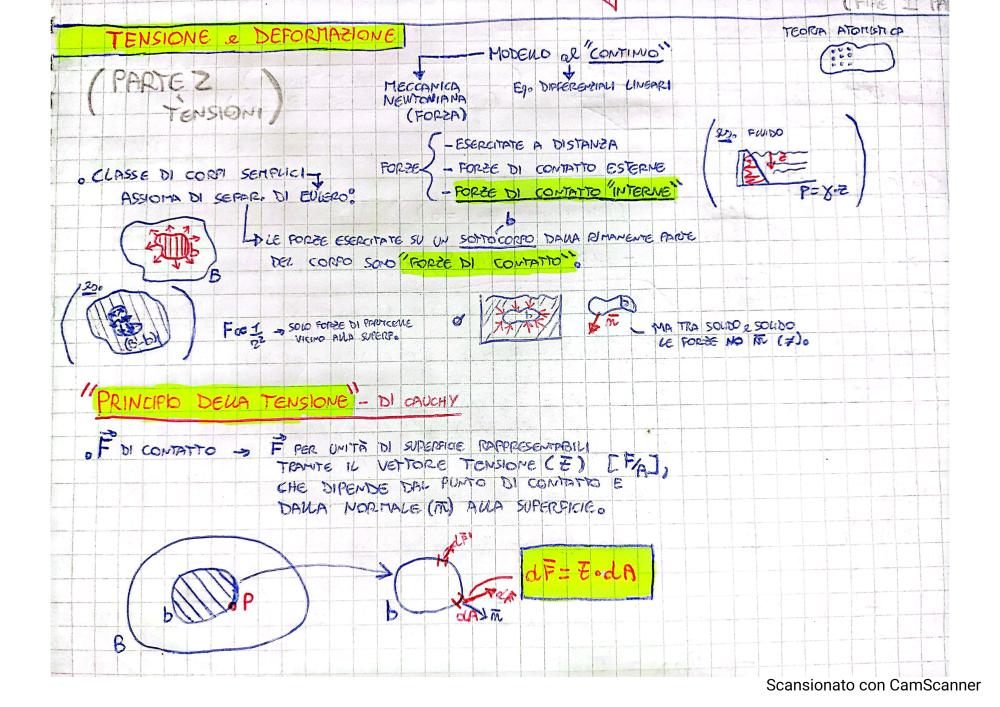 TENSIONE e DEFORMAZIONE
(PARTE 2
TENSIONI)
MODELLO al "CONTINUO"
TEORIA ATOMISTICA
MECCANICA
NEWTONIANA
(FORZA)
Eq. DIFFERENZIALI LINEARI
FORZE
- ESERCITATE A DISTANZA
- FORZE DI CONTATTO ESTERNE
- FORZE DI CONTATTO "INTERNE"
es. FLUIDO
z
P=γ·z
• CLASSE DI CORPI SEMPLICI
ASSIOMA DI SEPAR. DI EULERO:
b
LE FORZE ESERCITATE SU UN SOTTOCORPO DALLA RIMANENTE PARTE
DEL CORPO SONO "FORZE DI CONTATTO".
b
B
es.
(B-b)
F∝1/r² → SOLO FORZE DI PARTICELLE
VICINO ALLA SUPERF.
b
n̄
MA TRA SOLIDO e SOLIDO
LE FORZE NO n̄ (≠).
"PRINCIPIO DELLA TENSIONE" - DI CAUCHY
• F⃗ DI CONTATTO → F⃗ PER UNITÀ DI SUPERFICIE RAPPRESENTABILI
TRAMITE IL VETTORE TENSIONE (t̄) [F/A],
CHE DIPENDE DAL PUNTO DI CONTATTO E
DALLA NORMALE (n̄) ALLA SUPERFICIE.
dF̄
dF̄ = t̄·dA
b
P
B
b
dF̄
dA
n̄
Scansionato con CamScanner